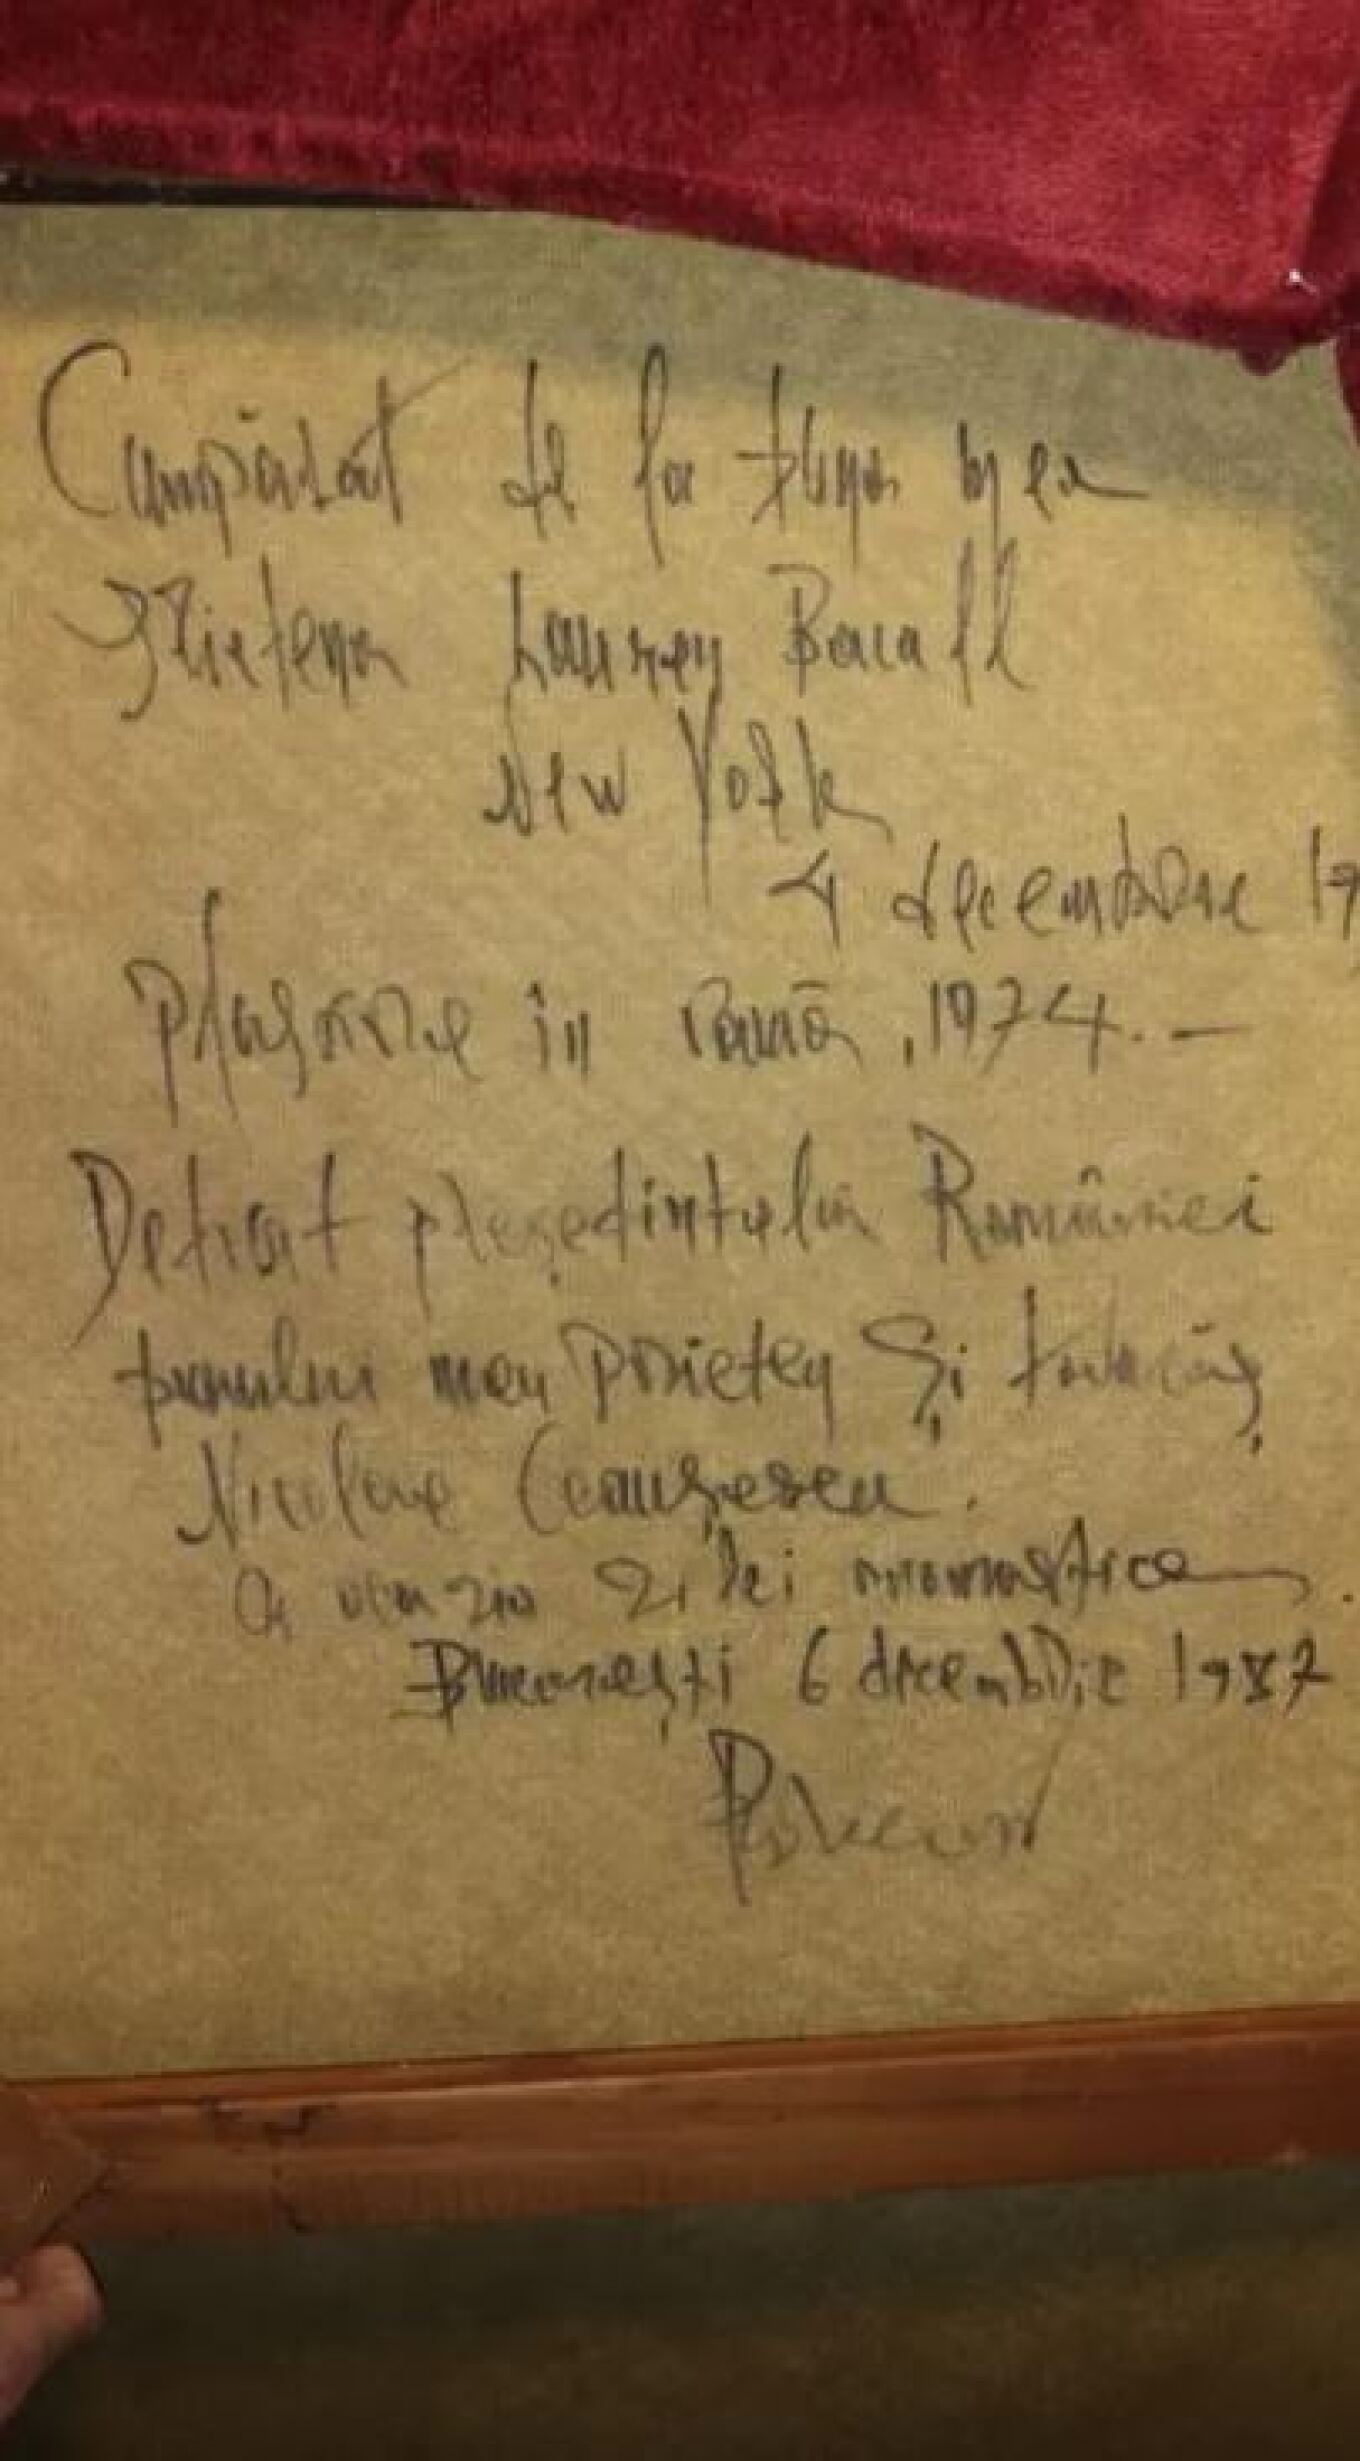 Cumpărat de la buna mea
prietena Lauren Bacall
New York
4 decembrie 19
în ramă, 1974.—
Dedicat președintelui României
bunului meu prieten și
Nicolae Ceaușescu.
a zilei onomastice.
București 6 decembrie 1987